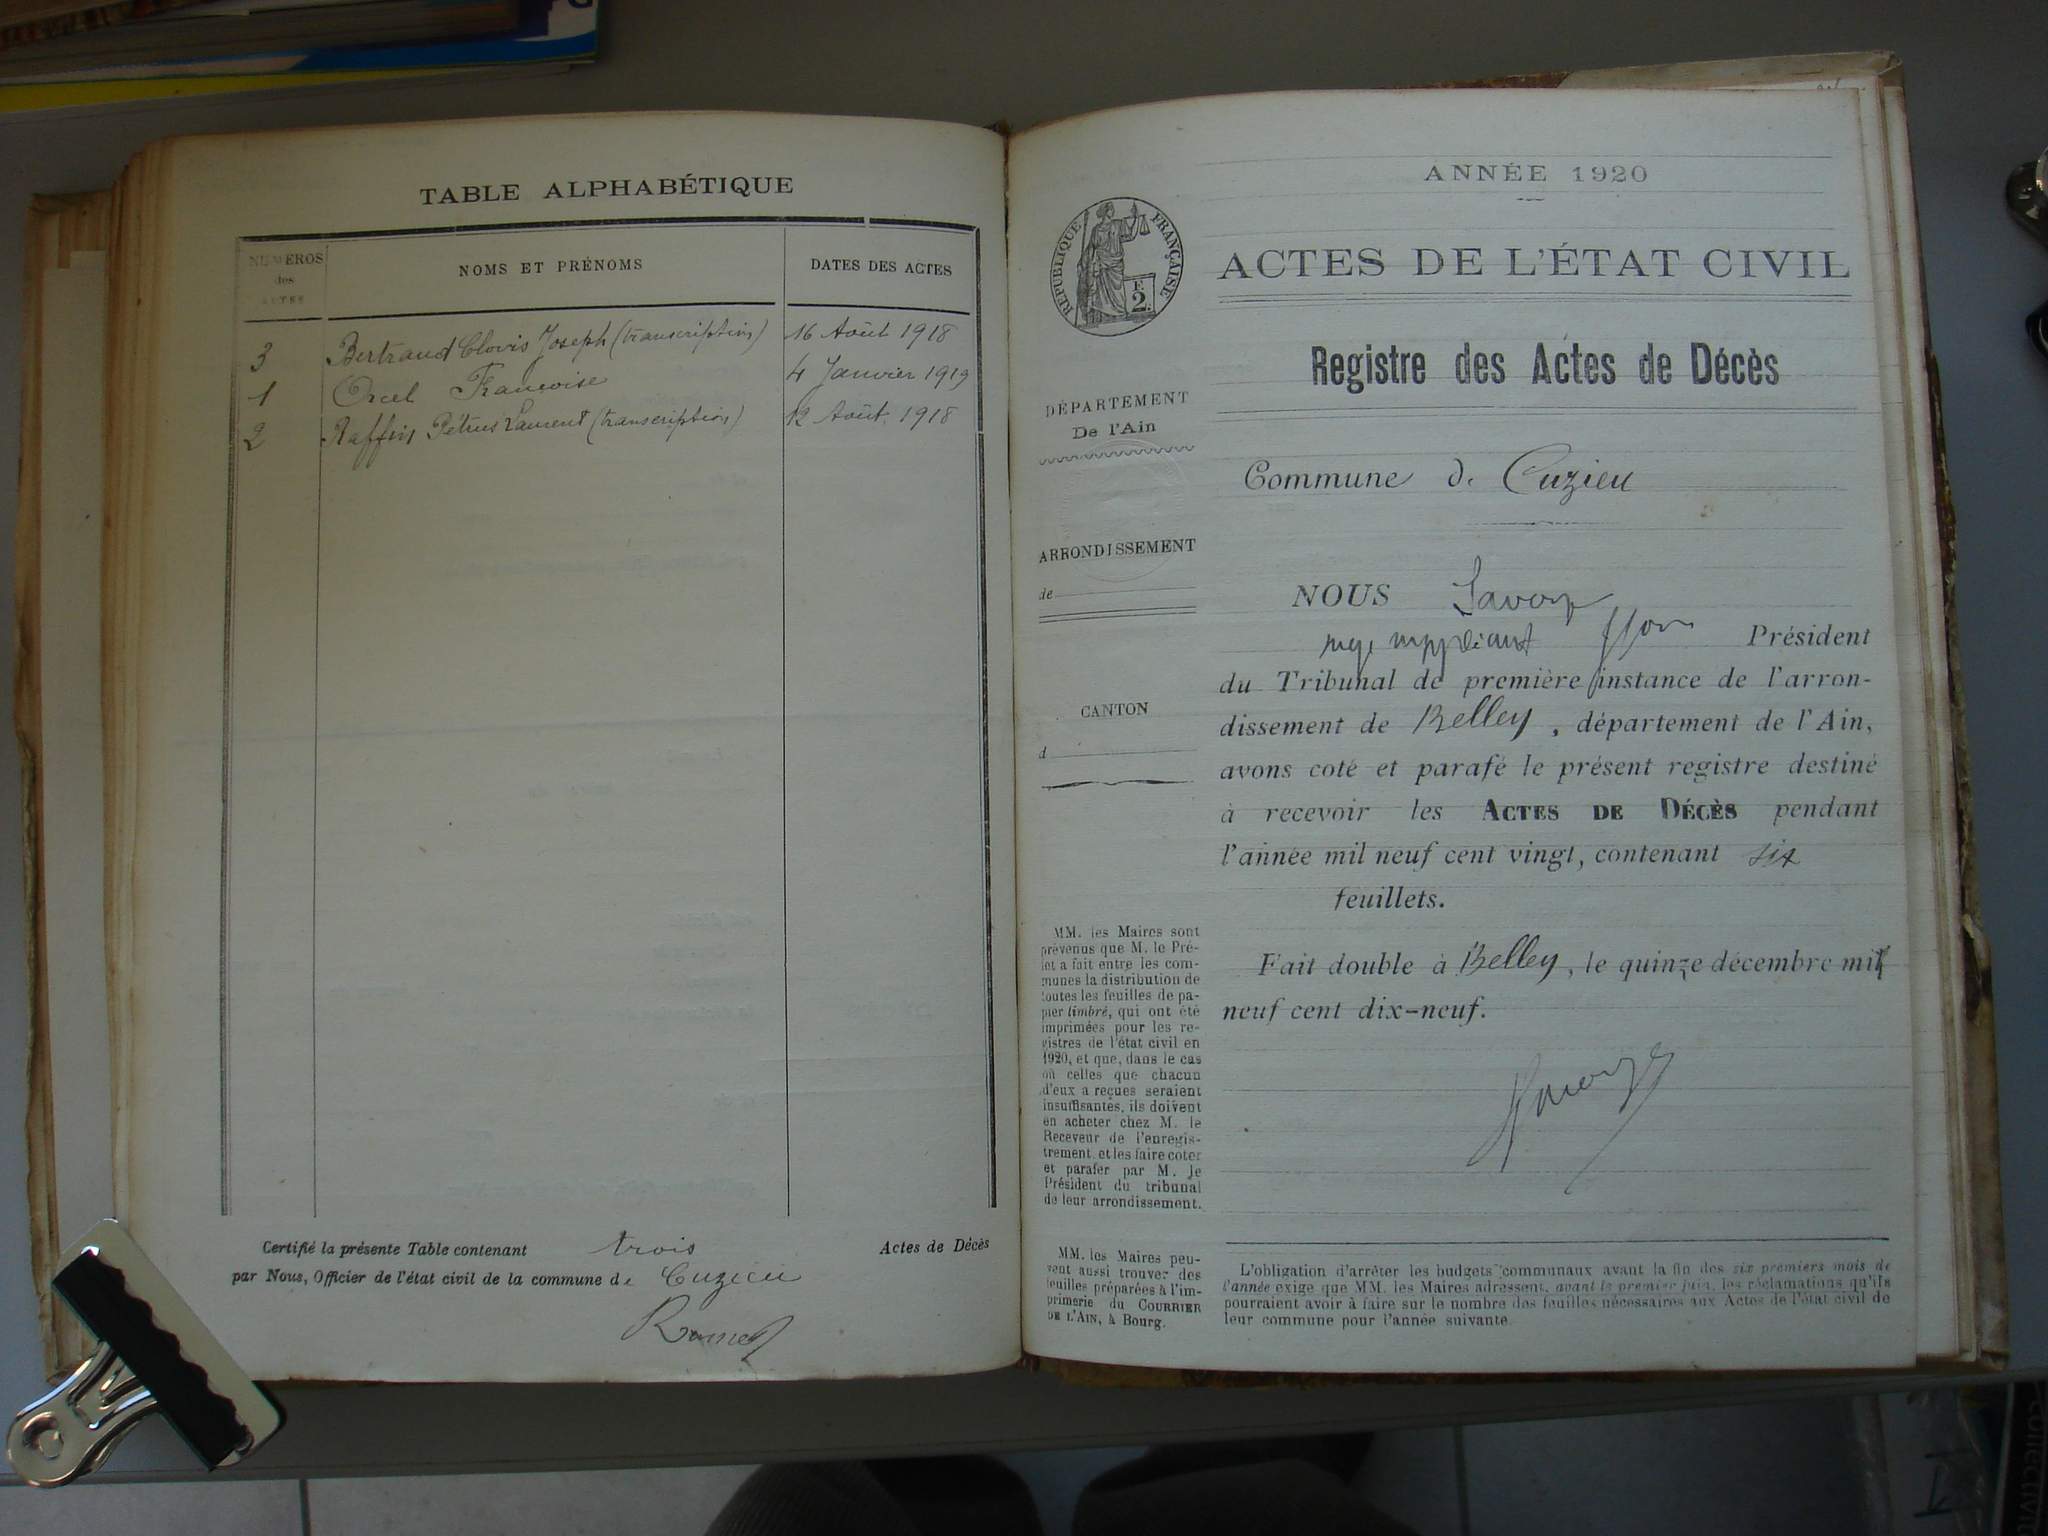 TABLE ALPHABÉTIQUE
NUMÉROS
des
ACTES
NOMS ET PRÉNOMS
DATES DES ACTES
3 Bertrand Clovis Joseph (transcription) 16 Août 1918
1 Orcel Françoise 4 Janvier 1919
2 Raffin Pétrus Laurent (transcription) 12 Août 1918
Certifié la présente Table contenant trois Actes de Décès
par Nous, Officier de l'état civil de la commune de Cuzieu
ANNÉE 1920
RÉPUBLIQUE FRANÇAISE
F
2
ACTES DE L'ÉTAT CIVIL
Registre des Actes de Décès
DÉPARTEMENT
De l'Ain
Commune de Cuzieu
ARRONDISSEMENT
de
NOUS
juge suppléant Président
du Tribunal de première instance de l'arron-
dissement de Belley, département de l'Ain,
CANTON
d
avons coté et parafé le présent registre destiné
à recevoir les ACTES DE DÉCÈS pendant
l'année mil neuf cent vingt, contenant six
feuillets.
Fait double à Belley, le quinze décembre mil
neuf cent dix-neuf.
MM. les Maires sont
prévenus que M. le Pré-
fet a fait entre les com-
munes la distribution de
toutes les feuilles de pa-
pier timbré, qui ont été
imprimées pour les re-
gistres de l'état civil en
1920, et que, dans le cas
où celles que chacun
d'eux a reçues seraient
insuffisantes, ils doivent
en acheter chez M. le
Receveur de l'enregis-
trement, et les faire coter
et parafer par M. le
Président du tribunal
de leur arrondissement.
MM. les Maires peu-
vent aussi trouver des
feuilles préparées à l'im-
primerie du COURRIER
DE L'AIN, à Bourg.
L'obligation d'arrêter les budgets communaux avant la fin des six premiers mois de
l'année exige que MM. les Maires adressent, avant le premier juin, les réclamations qu'ils
pourraient avoir à faire sur le nombre des feuilles nécessaires aux Actes de l'état civil de
leur commune pour l'année suivante.